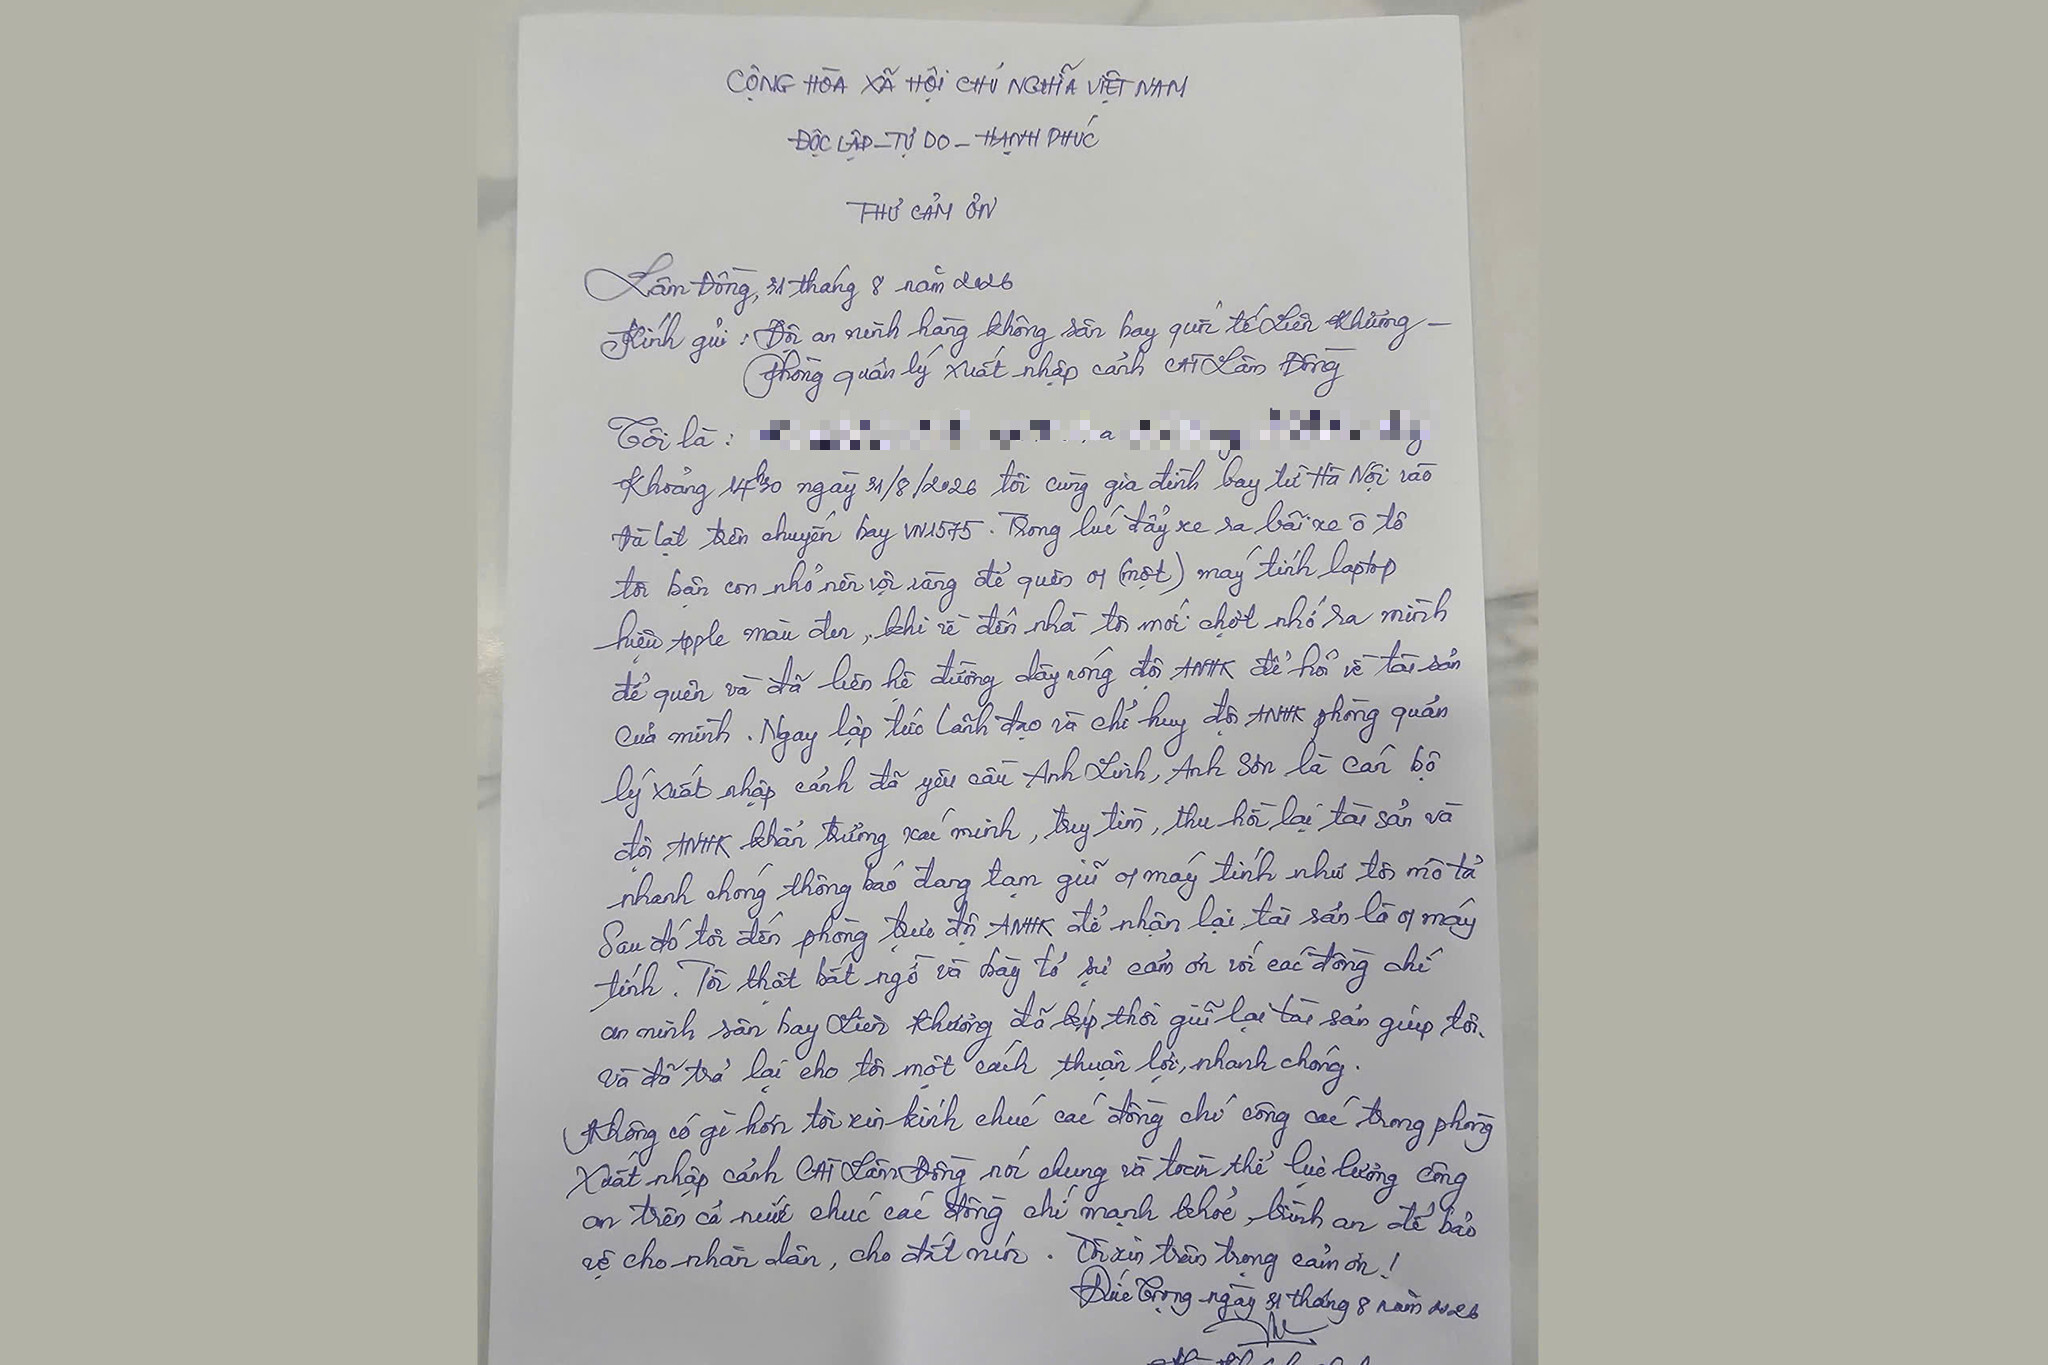 CỘNG HÒA XÃ HỘI CHỦ NGHĨA VIỆT NAM
ĐỘC LẬP - TỰ DO - HẠNH PHÚC
THƯ CẢM ƠN
Lâm Đồng, 31 tháng 8 năm 2026
Kính gửi: Đội an ninh hàng không sân bay quốc tế Liên Khương -
Phòng quản lý xuất nhập cảnh CAT Lâm Đồng
Tôi là:
Khoảng 14h30 ngày 31/8/2026 tôi cùng gia đình bay từ Hà Nội vào
Đà Lạt trên chuyến bay VN1575. Trong lúc đẩy xe ra bãi xe ô tô
tôi bận con nhỏ nên vội vàng để quên 01 (một) máy tính laptop
hiệu Apple màu đen, khi về đến nhà tôi mới chợt nhớ ra mình
để quên và đã liên hệ đường dây nóng đội ANHK để hỏi về tài sản
của mình. Ngay lập tức lãnh đạo và chỉ huy đội ANHK phòng quản
lý xuất nhập cảnh đã yêu cầu Anh Linh, Anh Sơn là cán bộ
đội ANHK khẩn trương xác minh, truy tìm, thu hồi lại tài sản và
nhanh chóng thông báo đang tạm giữ 01 máy tính như tôi mô tả
Sau đó tôi đến phòng trực đội ANHK để nhận lại tài sản là 01 máy
tính. Tôi thật bất ngờ và bày tỏ sự cảm ơn với các đồng chí
an ninh sân bay Liên Khương đã kịp thời giữ lại tài sản giúp tôi.
và đã trả lại cho tôi một cách thuận lợi, nhanh chóng.
Không có gì hơn tôi xin kính chúc các đồng chí công tác trong phòng
Xuất nhập cảnh CAT Lâm Đồng nói chung và toàn thể lực lượng công
an trên cả nước chúc các đồng chí mạnh khỏe, bình an để bảo
vệ cho nhân dân, cho đất nước. Tôi xin trân trọng cảm ơn!
Đức Trọng ngày 31 tháng 8 năm 2026